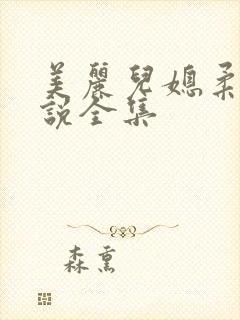 美麗兒媳柔
說全集
森熏